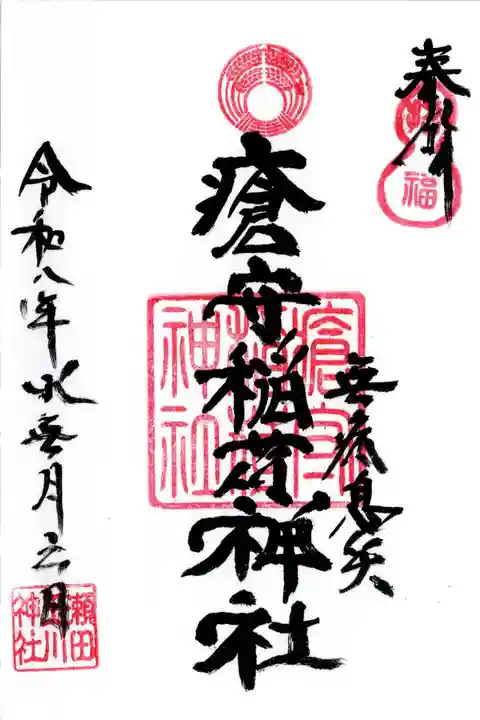 奉拝
福
無病息災
瘡守稲荷神社
瘡守
稲荷
神社
令和八年水無月日
瀬田
玉川
神社